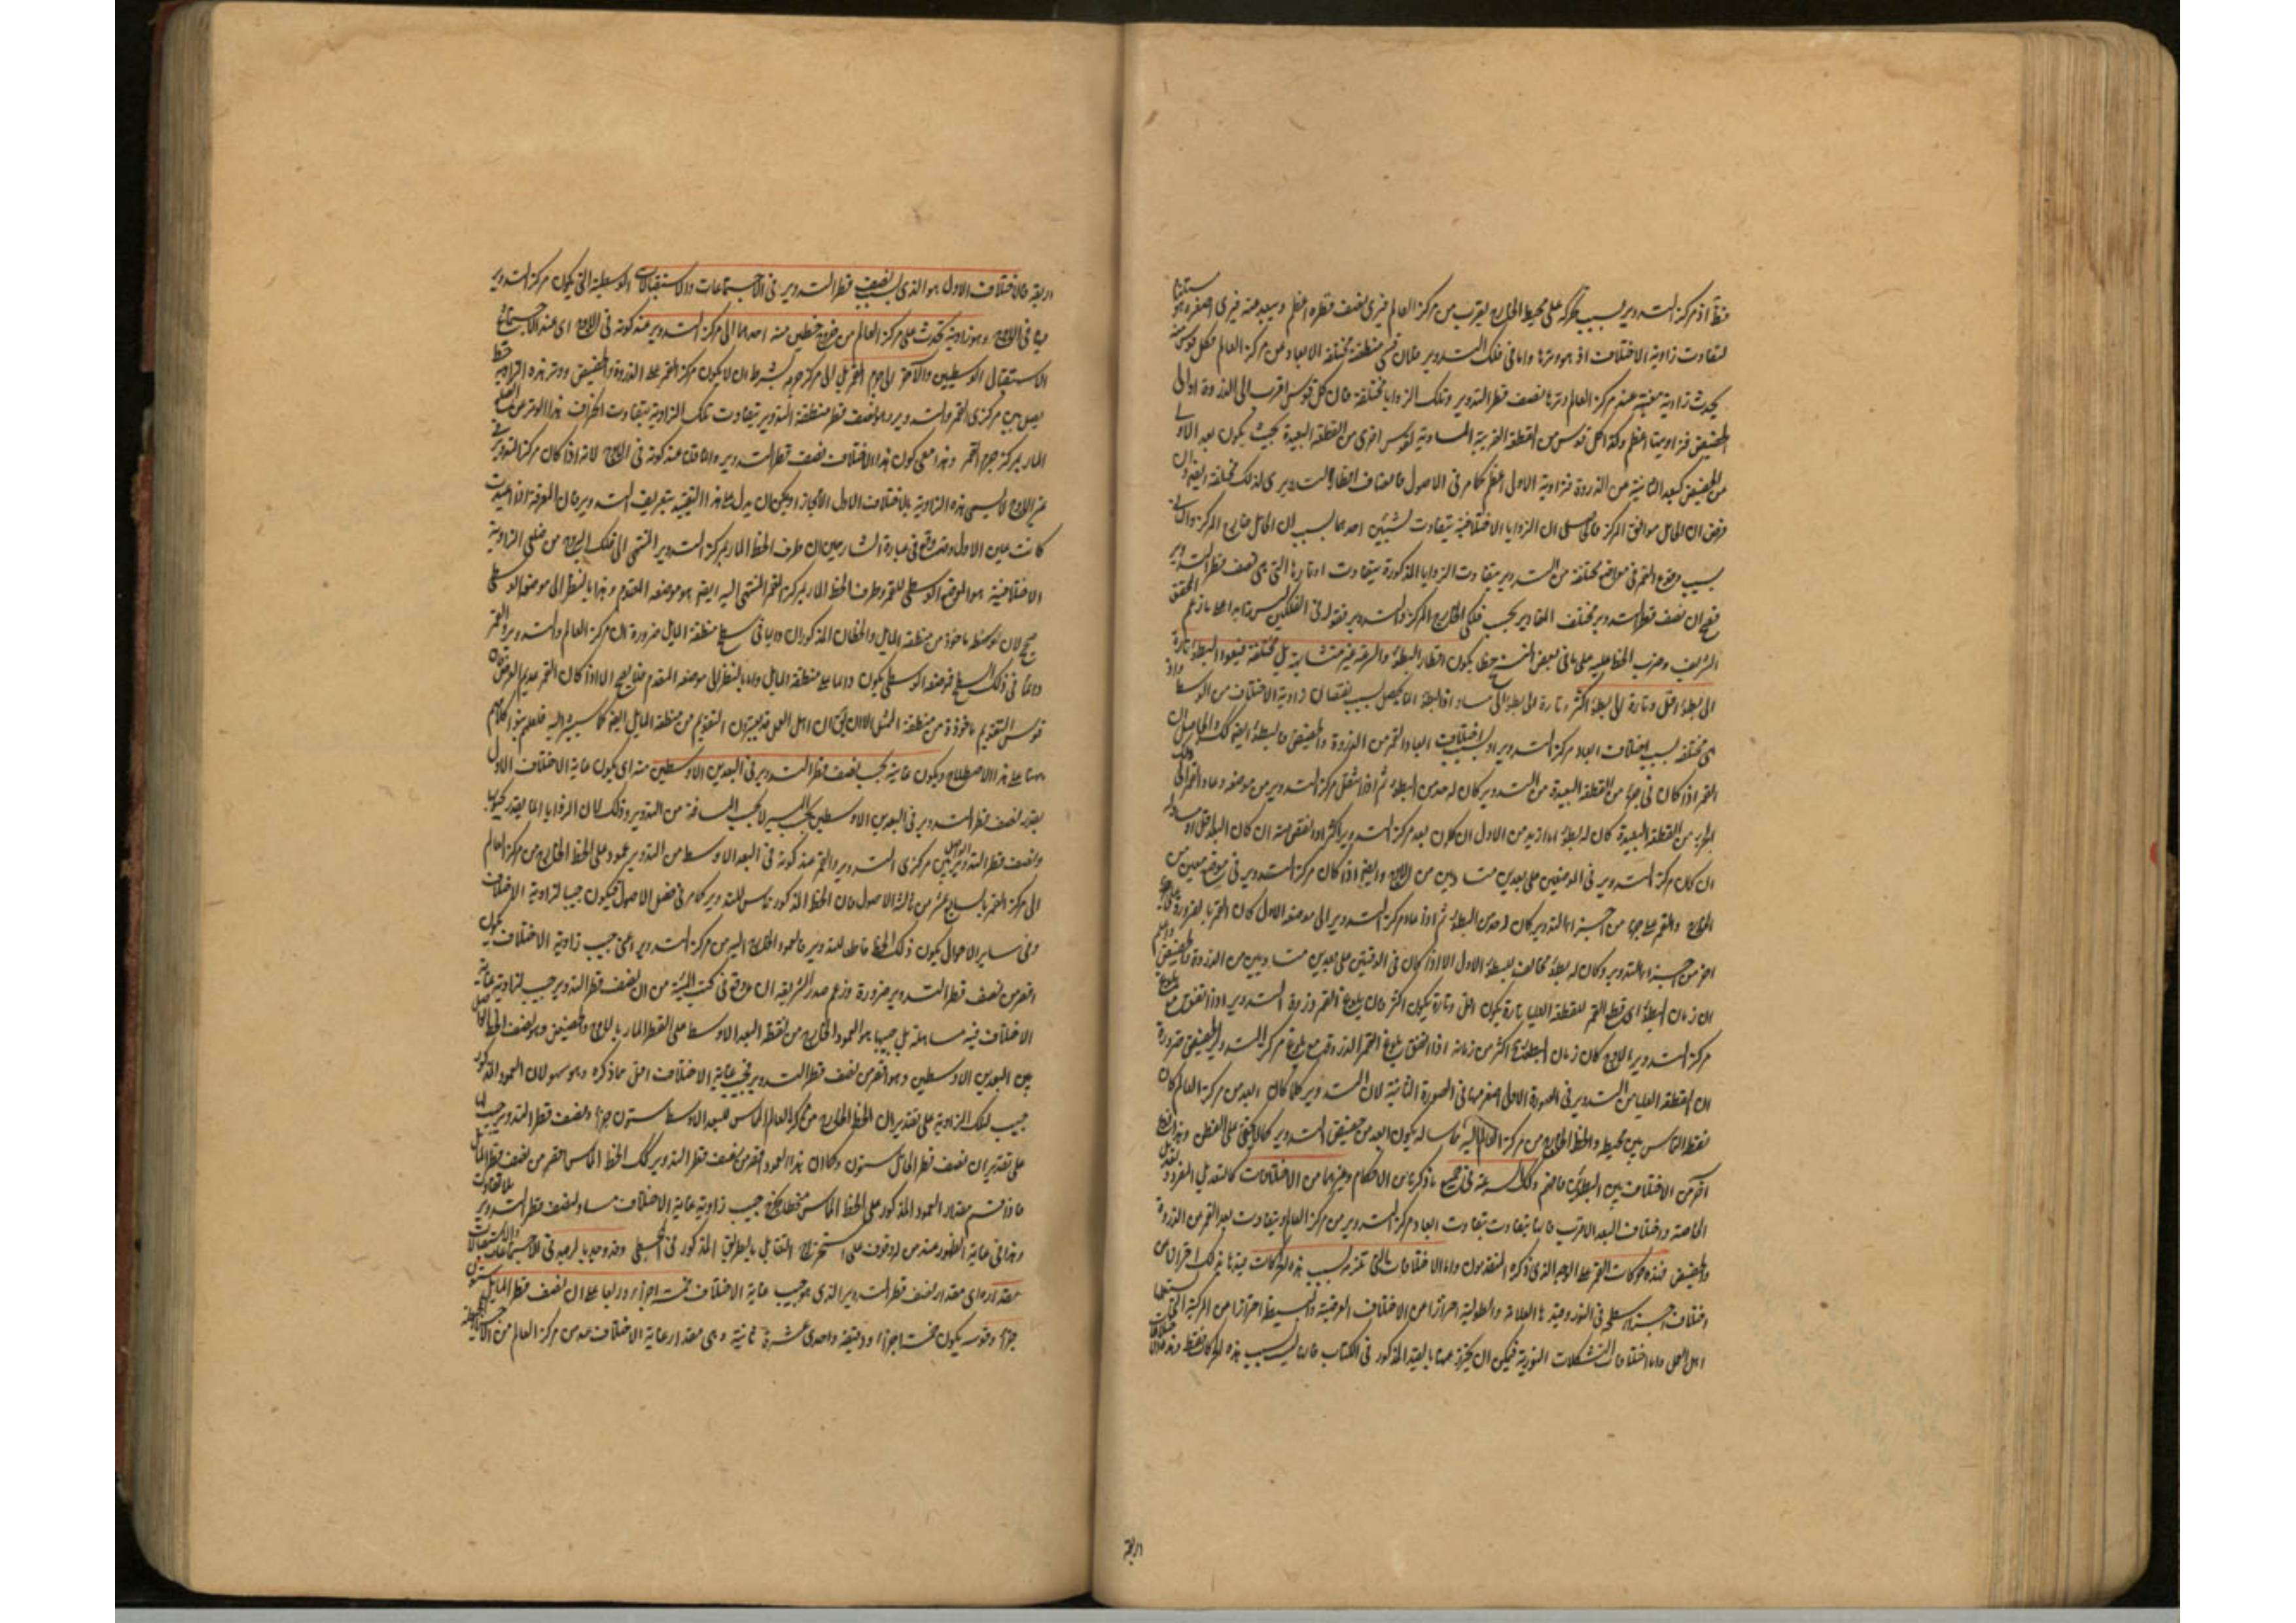 فتظ اذ مركز التدوير بسبب تحركه على محيط الخارج يقرب من مركز العالم فيرى نصف قطره اعظم ويبعد عنه فيرى اصغر وهو
لتفاوت زاوية الاختلاف اذ هو وترها واما في فلك التدوير فلان قسى منطقته مختلفة الابعاد عن مركز العالم فكل قوس منه
يحدث زاوية معينة عند مركز العالم وترها نصف قطر التدوير وتلك الزوايا مختلفة فان كل قوس اقرب الى الذروة او الى
الحضيض فزاويتها اعظم وكذا كل قوس من القطعة القريبة المساوية لقوس اخرى من القطعة البعيدة بحيث يكون بعد الاولى
من الحضيض كبعد الثانية من الذروة فزاوية الاولى اعظم كما مر في الاصول فانصاف اقطار التدوير يرى لذلك مختلفة
فرض ان الحامل موافق المركز فالحاصل ان الزوايا الاختلافية يتفاوت لشيئين احدهما بسبب ان الحامل خارج المركز والثاني
بسبب وقوع القمر في مواضع مختلفة من التدوير بتفاوت الزوايا المذكورة يتفاوت اوتارها التي هي نصف قطر التدوير
فصح ان نصف قطر التدوير مختلف المقادير بحسب فلكي الخارج المركز والتدوير فقوله في الفلكين ليس متا به اهلا ما زعم المحقق
الشريف وضرب الخط عليه على ما في بعض النسخ خطا يكون اقطار البطؤ والسرعة غير متشابهة بل مختلفة فيعود البطؤ تارة
الى بطؤ اقل وتارة الى بطؤ اكثر وتارة الى بطؤ الى مساو اذ البطؤ انما يحصل بسبب نقصان زاوية الاختلاف من الوسط
هي مختلفة بسبب اختلاف ابعاد مركز التدوير او بسبب اختلاف ابعاد القمر من الذروة والحضيض فالبطؤ ايضا كذلك والحاصل ان
القمر اذا كان في جزء من القطعة البعيدة من التدوير كان له حد من البطؤ ثم اذا انتقل مركز التدوير من موضعه وعاد القمر الى
الجزء من القطعة البعيدة كان له بطؤ اما ازيد من الاول ان كان بعد مركز التدوير اكثر او انقص منه ان كان البعد اقل او مساو له
ان كان مركز التدوير في الموضعين على بعدين متساويين من الاوج وايضا اذا كان مركز التدوير في موضع معين من
الخارج والقمر على جزء من اجزاء التدوير كان له حد من البطؤ ثم اذا عاد مركز التدوير الى موضعه الاول كان القمر بالضرورة على جزء
اخر من اجزاء التدوير وكان له بطؤ مخالف للبطؤ الاول الا اذا كان في الوقتين على بعدين متساويين من الذروة والحضيض واعلم
ان زمان البطؤ اي قطع القمر للقطعة العليا تارة يكون اقل وتارة يكون اكثر فان بلوغ القمر ذروة التدوير اذا اتفق مع بلوغ
مركز التدوير الاوج كان زمان البطؤ اكثر من زمانه اذا اتفق بلوغ القمر الذروة مع بلوغ مركز التدوير الحضيض ضرورة
ان القطعة العليا من التدوير في الصورة الاولى اصغر منها في الصورة الثانية لان التدوير كلما كان ابعد من مركز العالم كان
نقطة التماس بين محيطه والخط الخارج من مركز العالم اليه مماسا له يكون ابعد من حضيض التدوير كما لا يخفى على الفطن وهذا نوع
آخر من الاختلاف بين البطؤين فافهم وكذلك السرعة في جميع ما ذكرنا من الاحكام وغيرهما من الاختلافات كالتعديل المفرد وتعديل
الخاصة واختلاف البعد الاقرب فانها يتفاوت بتفاوت ابعاد مركز التدوير من مركز العالم ويتفاوت بعد القمر من الذروة
والحضيض فهذه حركات القمر على الوجه الذي ذكره المتقدمون واما الاختلافات التي تلزمه بسبب هذه الحركات قيدنا بذلك احترازا من
اختلاف اجزاء سطحه في النور وقيد نا العلامة والطولية احترازا من الاختلاف العرضية والبسيطة احترازا من المركبة التي يستعملها
اهل العمل واما اختلافات التشكلات النورية فيمكن ان يحترز عنها بالقيد المذكور في الكتاب فانها ليست بسبب هذه الحركات فقط
اربعة
اربعة فالاختلاف الاول هو الذي بسبب نصف قطر التدوير في الاجتماعات والاستقبالات الوسطية التي يكون مركز التدوير
فيها في الاوج وهو زاوية تحدث على مركز العالم من خروج خطين منه احدهما الى مركز التدوير عند كونه في الاوج اى عند الاجتماع
الاستقبال الوسطيين والآخر الى جرم القمر بل الى مركز جرمه بشرط ان لا يكون مركز القمر على الذروة والحضيض ووتر هذه الزاوية خط
يصل بين مركزى القمر والتدوير وهو نصف قطر منطقة التدوير بتفاوت تلك الزاوية بتفاوت انحراف هذا الوتر عن الخط
المار بمركز جرم القمر وهذا معنى كون هذا الاختلاف نصف قطر التدوير وانما قال عند كونه في الاوج لانه اذا كان مركز التدوير في
غير الاوج لا يسمى هذه الزاوية بالاختلاف الاول الا مجازا ويمكن ان يدل على هذا التقييد بتعريف التدوير فان المعرفة اذا اعيدت
كانت عين الاول وقد وقع في عبارة الشارحين ان طرف الخط المار بمركز التدوير المنتهى الى فلك البروج من ضلعى الزاوية
الاختلافية هو الموضع الوسطى للقمر وطرف الخط المار بمركز القمر المنتهى اليه ايضا هو موضعه المقوم وهذا بالنظر الى موضعه الوسطى
صحيح لان وسطه ماخوذ من منطقة المايل والخطان المذكوران دايما في سطح منطقة المايل ضرورة ان مركز العالم والتدوير والقمر
دائما في ذلك السطح فموضعه الوسطى يكون دائما على منطقة المايل واما بالنظر الى موضعه المقوم فلا يصح الا اذا كان القمر عديم العرض لان
قوس التقويم ماخوذة من منطقة الممثل الا ان يقال ان اهل العمل قد يعتبرون التقويم من منطقة المايل ايضا كما سيشير اليه فلعلهم بنوا كلامهم
ههنا على هذا الاصطلاح ويكون غايته بحسب نصف قطر التدوير في البعدين الاوسطين منه اى يكون غاية الاختلاف الاول
بقدر نصف قطر التدوير في البعدين الاوسطين بحسب المسير لا بحسب المسافة من التدوير وذلك لان الزوايا انما يقدر بجيوبها
ونصف قطر التدوير الواصل بين مركزى التدوير والقمر عند كونه في البعد الاوسط من التدوير عمود على الخط الخارج من مركز العالم
الى مركز القمر بالسابع عشر من ثالثة الاصول فان الخط المذكور مماس للتدوير كما مر في فصل الاصول فيكون جيبا لزاوية الاختلاف
وفي ساير الاحوال يكون ذلك الخط قاطعا للتدوير فالعمود الخارج اليه من مركز التدوير اعنى جيب زاوية الاختلاف يكون
اقصر من نصف قطر التدوير ضرورة وزعم صدر الشريعة ان ما وقع في كتب الهيئة من ان نصف قطر التدوير جيب لزاوية غاية
الاختلاف فيه مساهلة بل جيبها هو العمود الخارج من نقطة البعد الاوسط على القطر المار بالاوج والحضيض وهو نصف الخط الواصل
بين البعدين الاوسطين وهو اقصر من نصف قطر التدوير فجيب غاية الاختلاف اقل مما ذكره وهو سهو لان العمود المذكور
جيب لتلك الزاوية على تقدير ان الخط الخارج من مركز العالم المماس للبعد الاوسط ستون جزءا ونصف قطر التدوير جيب لها
على تقدير ان نصف قطر الحامل ستون وكما ان هذا العمود اقصر من نصف قطر التدوير كذلك الخط المماس اقصر من نصف قطر المايل
فاذا قسم مقدار العمود المذكور على الخط المماس منحطا يخرج جيب زاوية غاية الاختلاف مساو لنصف قطر التدوير بلا تفاوت
وهذا في غاية الظهور عند من له وقوف على استخراج التقابل بالطريق المذكور في المجسطى وقد وجد بالرصد في الاجتماعات والاستقبالات
مقداره اى مقدار نصف قطر التدوير الذى هو جيب غاية الاختلاف خمسة اجزاء وربعا على ان نصف قطر المايل ستون
جزءا وقوسه يكون خمسة اجزاء ودقيقة واحدى عشرة ثانية وهى مقدار غاية الاختلاف عند مركز العالم من